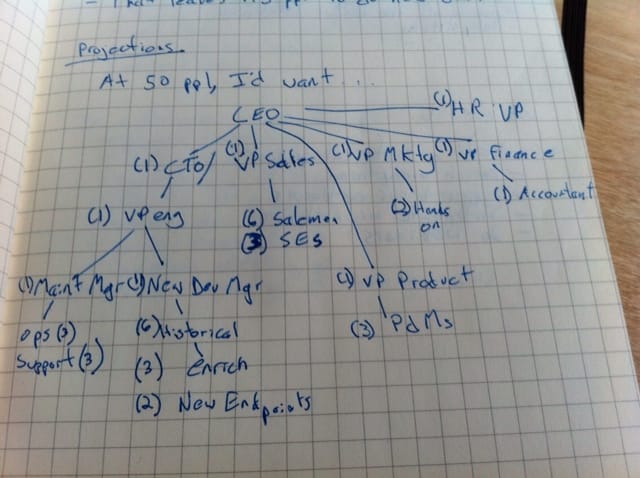 Projections
At 50 ppl, I'd want...
CEO
(1) HR VP
(1) CTO/
(1) VP Sales
(1) VP Mktg
(1) VP Finance
(1) VP eng
(6) Salesmen
(3) SES
(2) Hands on
(1) Accountant
(1) Maint Mgr
(1) New Dev Mgr
(1) VP Product
ops (3)
Support (3)
(6) Historical
(3) enrich
(2) New Endpoints
(3) PdMs